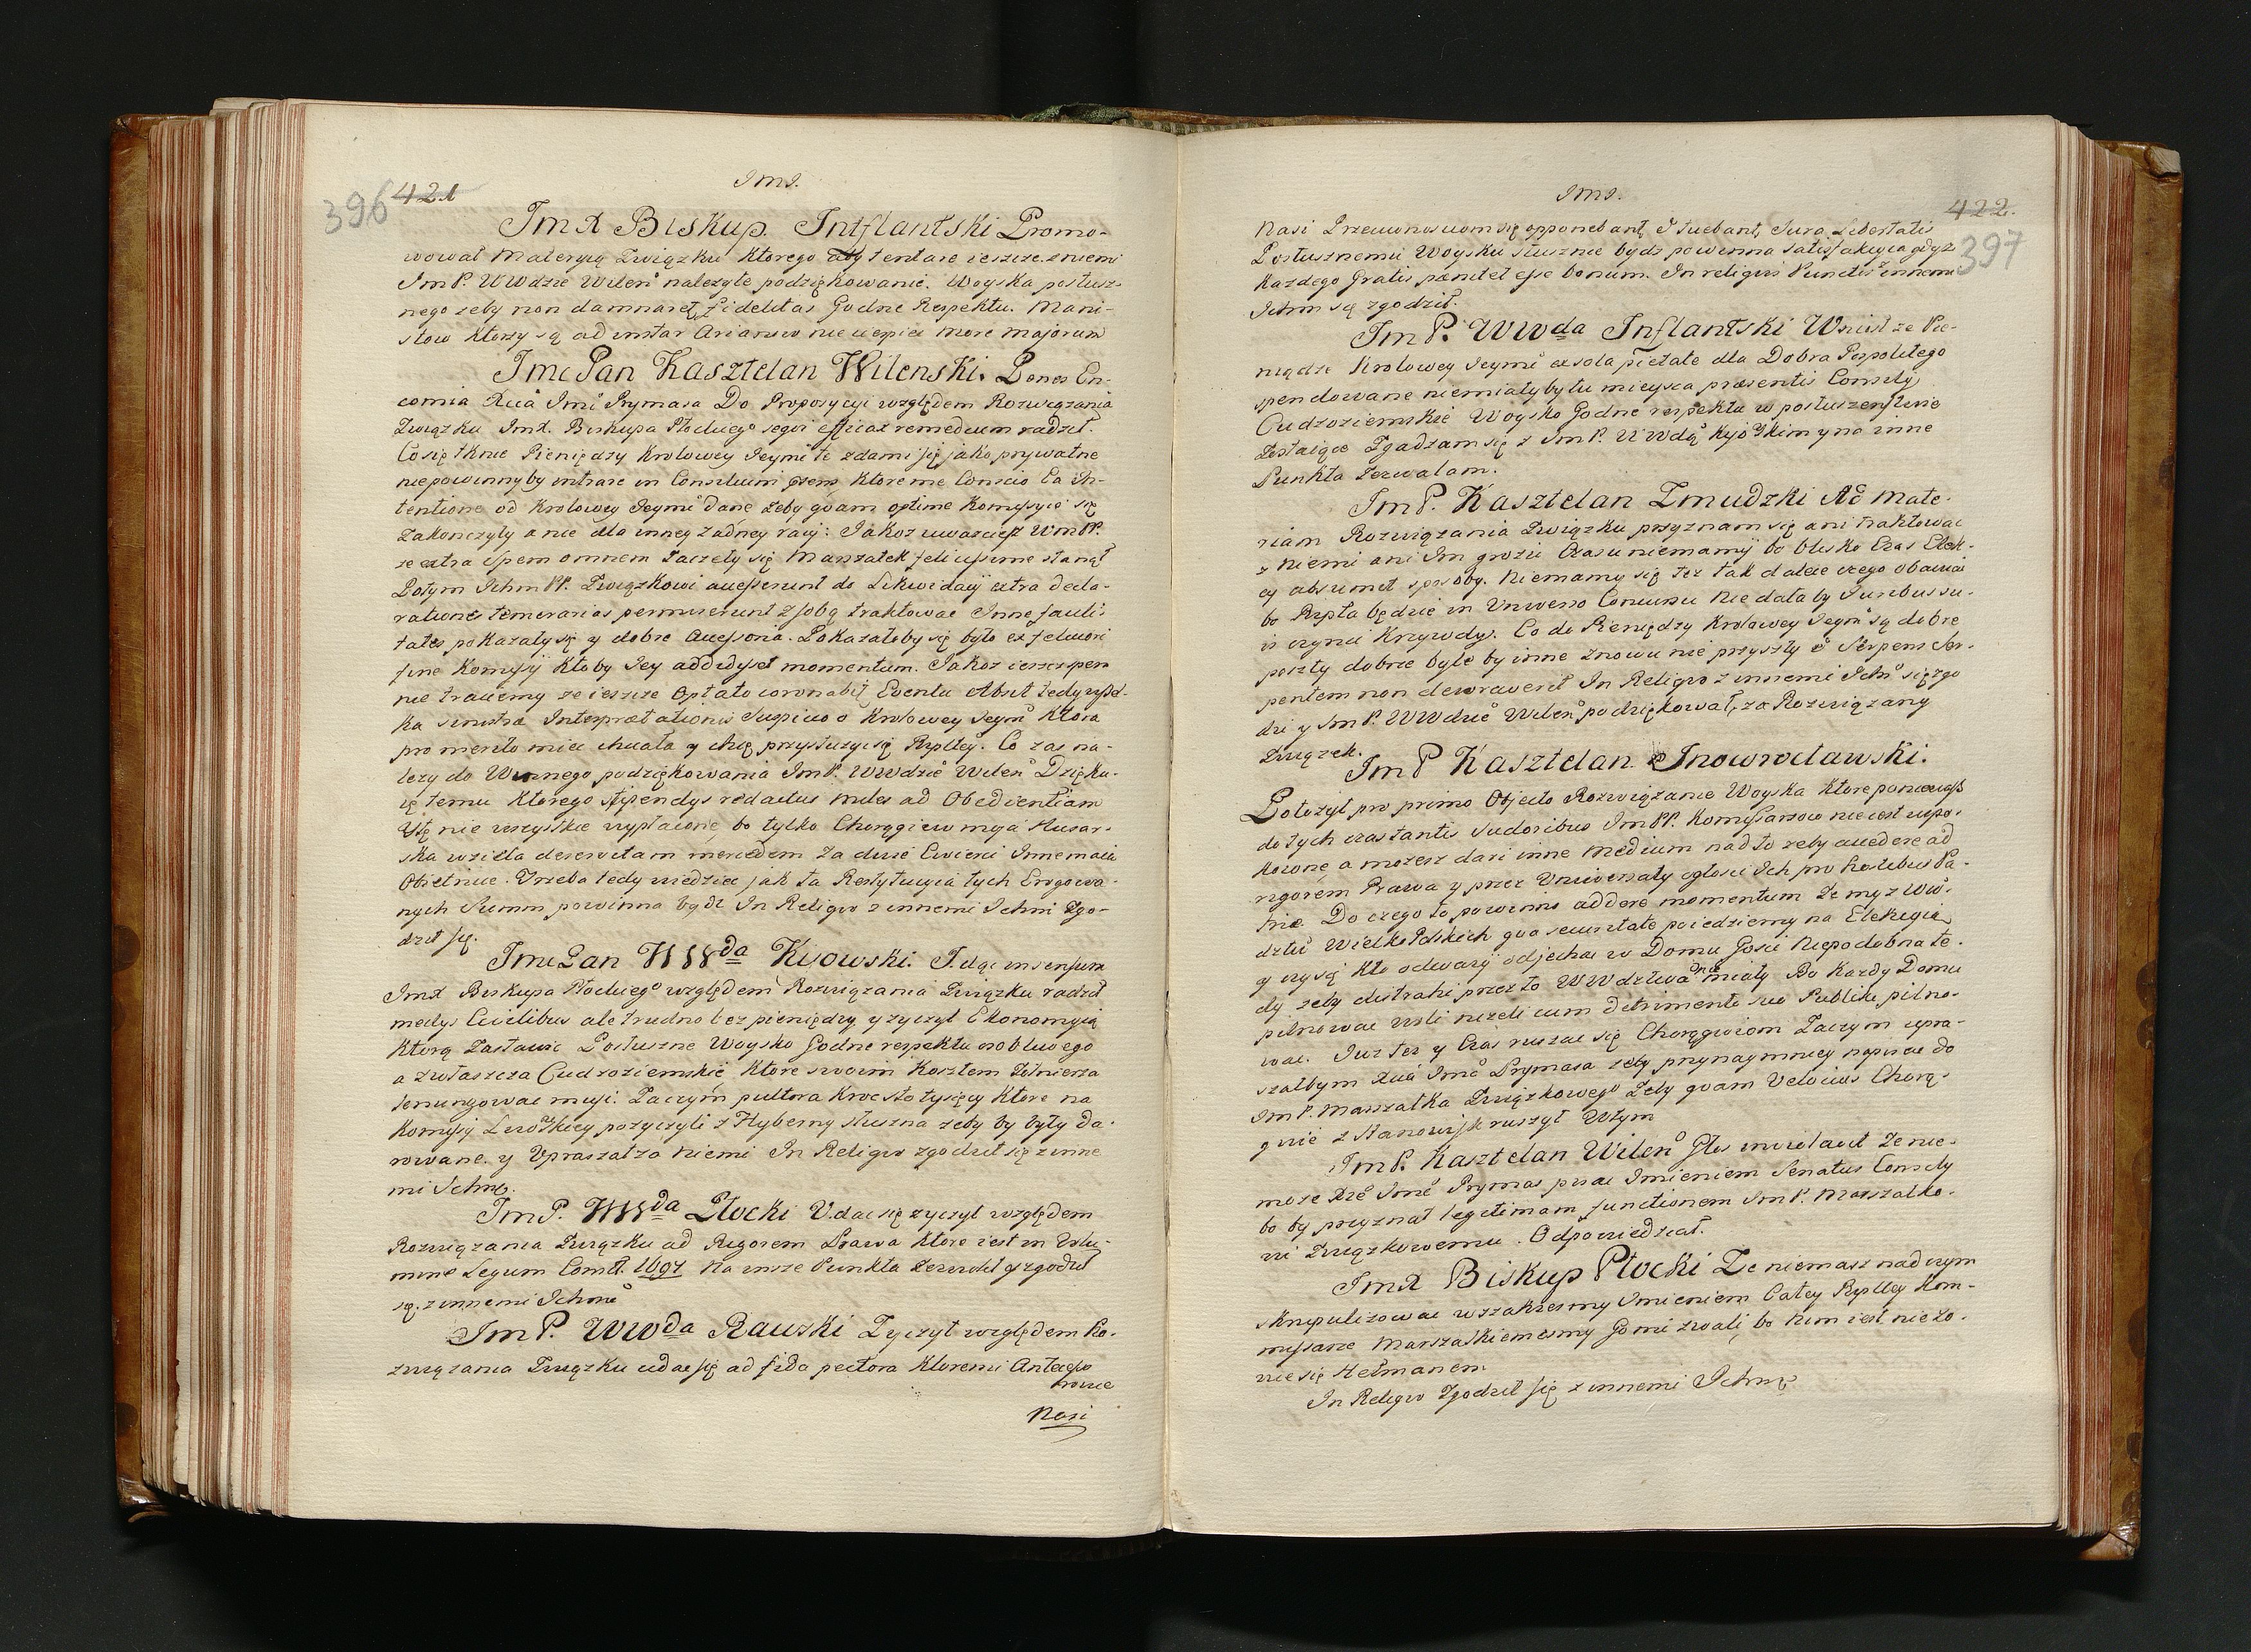 396 421
ImX Biskup Intflantski Promo-
wował Materyią Związku Ktorego aby tentare ieszcze z niemi
ImP. WWdzie Wilen należyte podziękowanie. Woyska posłusz-
nego zeby non damnaret fidelitas Godne Respektu. Mani-
stow ktorzy są ad instar Arianow nie cierpiec more majorum
Jmc Pan Kasztelan Wilenski. Penes En-
comia Xcia Imci Prymasa Do Propozycyi względem Rozwiązania
Związku ImX. Biskupa Płockiego segui efficax remedium radził.
Co się tknie Pieniędzy Krolowey Jeymci te zdami się jako prywatne
niepowinnyby intrare in Consilium gdem Ktore me Conscio Ea In-
tentione od Krolowey Jeymci dane zeby quam optime Komysye się
Zakonczyły a nie dla inney zadney racij: Jakoz uwazciesz WmPP.
ze extra spem omnem zaczeły się Marszałek felicissime stanął
Potym IchmPP. Związkowi accesserunt do Likwidacij extra decla-
rationes temerarias permiserunt z sobą traktowac Inne facili-
tates pokazały się y dobre Accessoria. Pokazałoby się było ex feliciori
fine Komysij Ktoby Jey addidysset momentum. Jakoz ieszcze spem
nie tracemy ze ieszcze optato coronabit Eventu Absit tedy wszel-
ka sinistra Interpretationis Suspicio o Krolowey Jeym Ktora
pro merito miec chciała y chcę przysłuzyc się Rzpltey. Co zas na-
lezy do Winnego podziękowania ImP. WWdzie Wilen Dzięku-
ię temu Ktorego stipendys redactus miles ad Obedientiam
Ktę nie wszystkie wypłacone, bo tylko Chorągiew moja Husar-
ska wzieła deservitam mercedem Za dwie Cwierci Inne maia
Obietnice. Trzeba tedy wiedziec jak ta Restytucyia tych Erogowa-
nych Summ powinna bydz In Religio z innemi Ichmi Zgo-
dził się.
Jmc Pan WWda Kijowski. Idąc in sensum
ImX Biskupa Płockiego względem Rozwiązania Związku radził
medys Civilibus ale trudno bez pieniędzy y zyczył Ekonomyią
Ktorą Zastawic Posłuszne Woysko Godne respektu osobliwego
a zwłaszcza Cudzoziemskie Ktore swoim Kosztem Zołnierza
lenungowac musi. Zaczym pułtora Kroc sto tysięcy Ktore na
Komysij Lwowskiey pozyczyli z Hyberny słuszna zeby by były da-
rowane. y Upraszał za niemi In Religio zgodził się z inne
mi Ichm.
ImP. WWda Płocki Udac się zyczył względem
Rozwiązania Związku ad Rigorem Prawa Ktore iest in Volu-
mine Legum Constt. 1697 Na insze Punkta Zezwolił y zgodził
się z innemi Ichmc
ImP. WWda Rawski Zyczył względem Ro-
zwązania Związku udac się ad fida pectora Ktoremi Anteceso
rowie
Nasi
422.
397
Nasi Przeciwnosciom się opponebant, Itucbant, Jura Libertatis
Posłusznemu Woysku słusznie bydz powinna satisfakcyia gdyz
Kazdego Gratis pænitet esse bonum. In reliqvis Punctis z innemi
Ichm się zgodził.
ImP. WWda Inflantski Wniosł ze Pie-
niądze Krolowey Jeymci ex sola pietate dla Dobra Pospolitego
spendowane niemiałyby tu mieysca præsentis Consily
Cudzoziemskie Woysko Godne respektu w posłuszenstwie
Zostaiące Zgadzam się z ImP. WWdą Kyiowskim y na inne
Punkta Zezwalam.
ImP. Kasztelan Zmudzki Ad Mate-
riam Rozwiązania Związku przyznam się ani traktowac
z niemi ani Im grozic Czasu niemamy bo blisko Czas Elek-
cy absumet sposoby. Niemamy się tez tak dalece czego obawiac
bo Rzplta będzie in Universo Concursu Nie dała by Iuribus su-
is czynic Krzywdy. Co do Pieniędzy Krolowey Jeym są dobre
poszły dobrze byle by inne znowu nie przyszły et Serpens Ser-
pentem non devoraverit In Religio z innemi Ichm się zgo
dzi y ImP. WWdzie Wilen podziękował, za Rozwiązany
Związek.
ImP Kasztelan Inowrocławski.
Położył pro primo Objecto Rozwiązanie Woyska Ktore poniewasz
dotych czas tantis Sudoribus ImPP. Komissarzow nie iest uspo-
koione a mozesz dari inne medium nad to zeby accedere ad
rigorem Prawa y przez Uniwersały ogłosic Ich pro hostibus Pa-
trie. Do czego to powinno addere momentum Ze my z Ww-
dztw WielkoPolskich qua securitate poiedziemy na Elekcyią
y czy się Kto odwazy odjechac w Domu Gosci Niepodobna te-
dy zeby distrahi przez to WWdztwa nie miały Bo Kazdy Domu
pilnowac woli nizeli cum detrimento suo Publiki pilno-
wac. Iuz tez y Czas ruszac się Chorągwiom Zaczym upra-
szałbym Xcia Imci Prymasa zeby przynaymniey napisac do
ImP. Marszałka Związkowego Zeby quam velocius Chorą-
gwie z Stanowisk ruszył Wtym
ImP. Kasztelan Wilen Głos inwolavit Ze nie-
moze Xże Imci Prymas pisac Imieniem Senatus Consily
bo by przyznał legitimam functionem ImP. Marszałko-
wi Związkowemu. Odpowiedział.
ImX Biskup Płocki Ze niemasz nad czym
skrupulizowac wszakzesmy Imieniem Całey Rzpltey Kom-
missarze Marszałkiemesmy Gomi zwali, bo Nim iest nie zo-
wie się Hetmanem.
In Religio Zgodził się z innemi Ichm